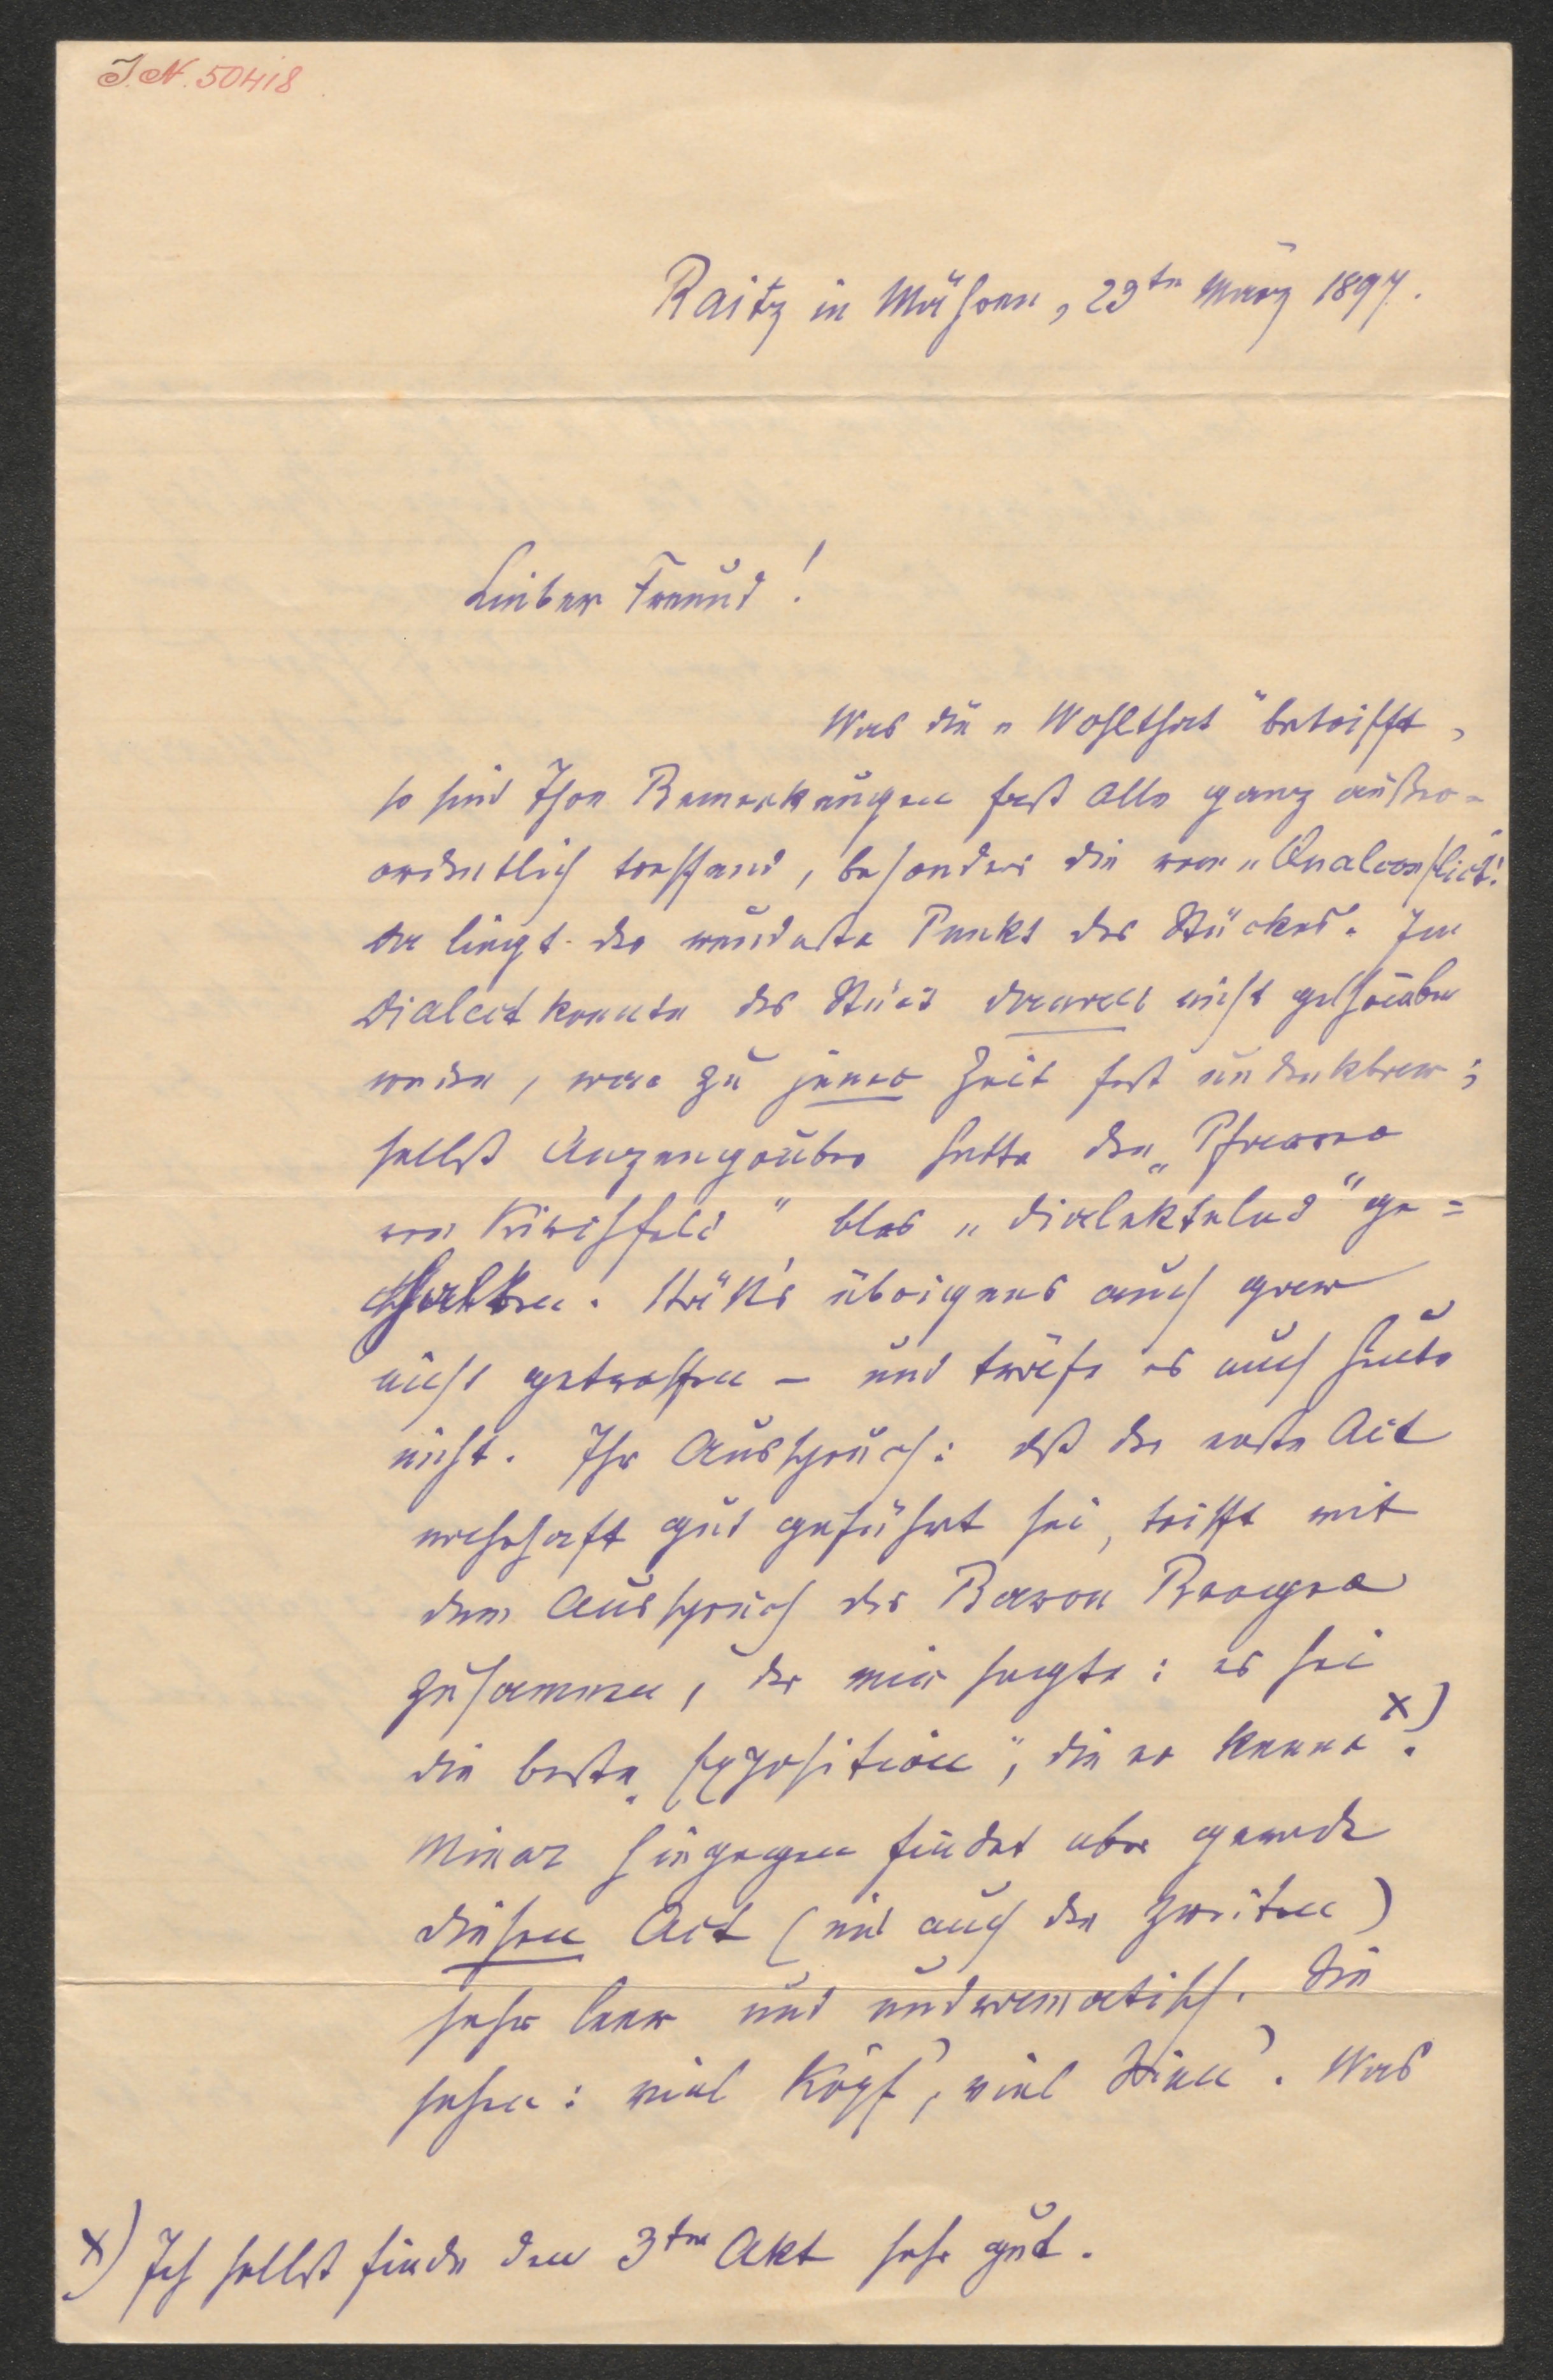 J. N. 50418
Raitz in Mähren, 29ten März 1897.
Lieber Freund!
Was die „Wohlthat" betrifft,
so sind Ihre Bemerkungen fast alle ganz außer-
ordentlich treffend, besonders die vom „Qualconflict".
Da liegt der wundeste Punkt des Stückes. Im
Dialect konnte das Stück damals nicht geschrieben
werden, war zu jener Zeit fast undenkbar;
selbst Anzengruber hatte den „Pfarrer
von Kirchfeld" blos „dialektelnd" ge=
halten. Hätt's übrigens auch gar
nicht getroffen – und träfe es auch heute
nicht. Ihr Ausspruch: daß der erste Act
wahrhaft gut geführt sei, trifft mit
dem Ausspruch des Baron Berger
zusammen, der mir sagte: es sei
die beste „Exposition", die er kenne x).
Minor hingegen findet aber gerade
diesen Act (und auch den zweiten)
sehr leer und undramatisch. Sie
sehen: viel Köpf', viel Sinn'. Was
x) Ich selbst finde den 3ten Akt sehr gut.